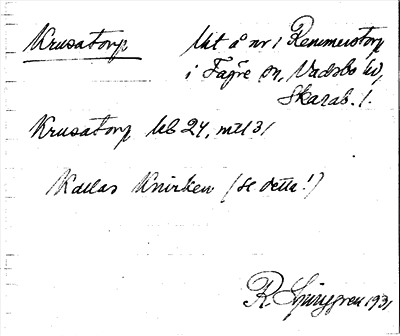 Krusatorp
Utt å nr 1 Remmerstorp
i Fägre sn, Vadsbo hd,
Skarab. l.
Krusatorp kb 24, mtl 31
Kallas Knirken (se detta!)
R. Ljunggren 1931